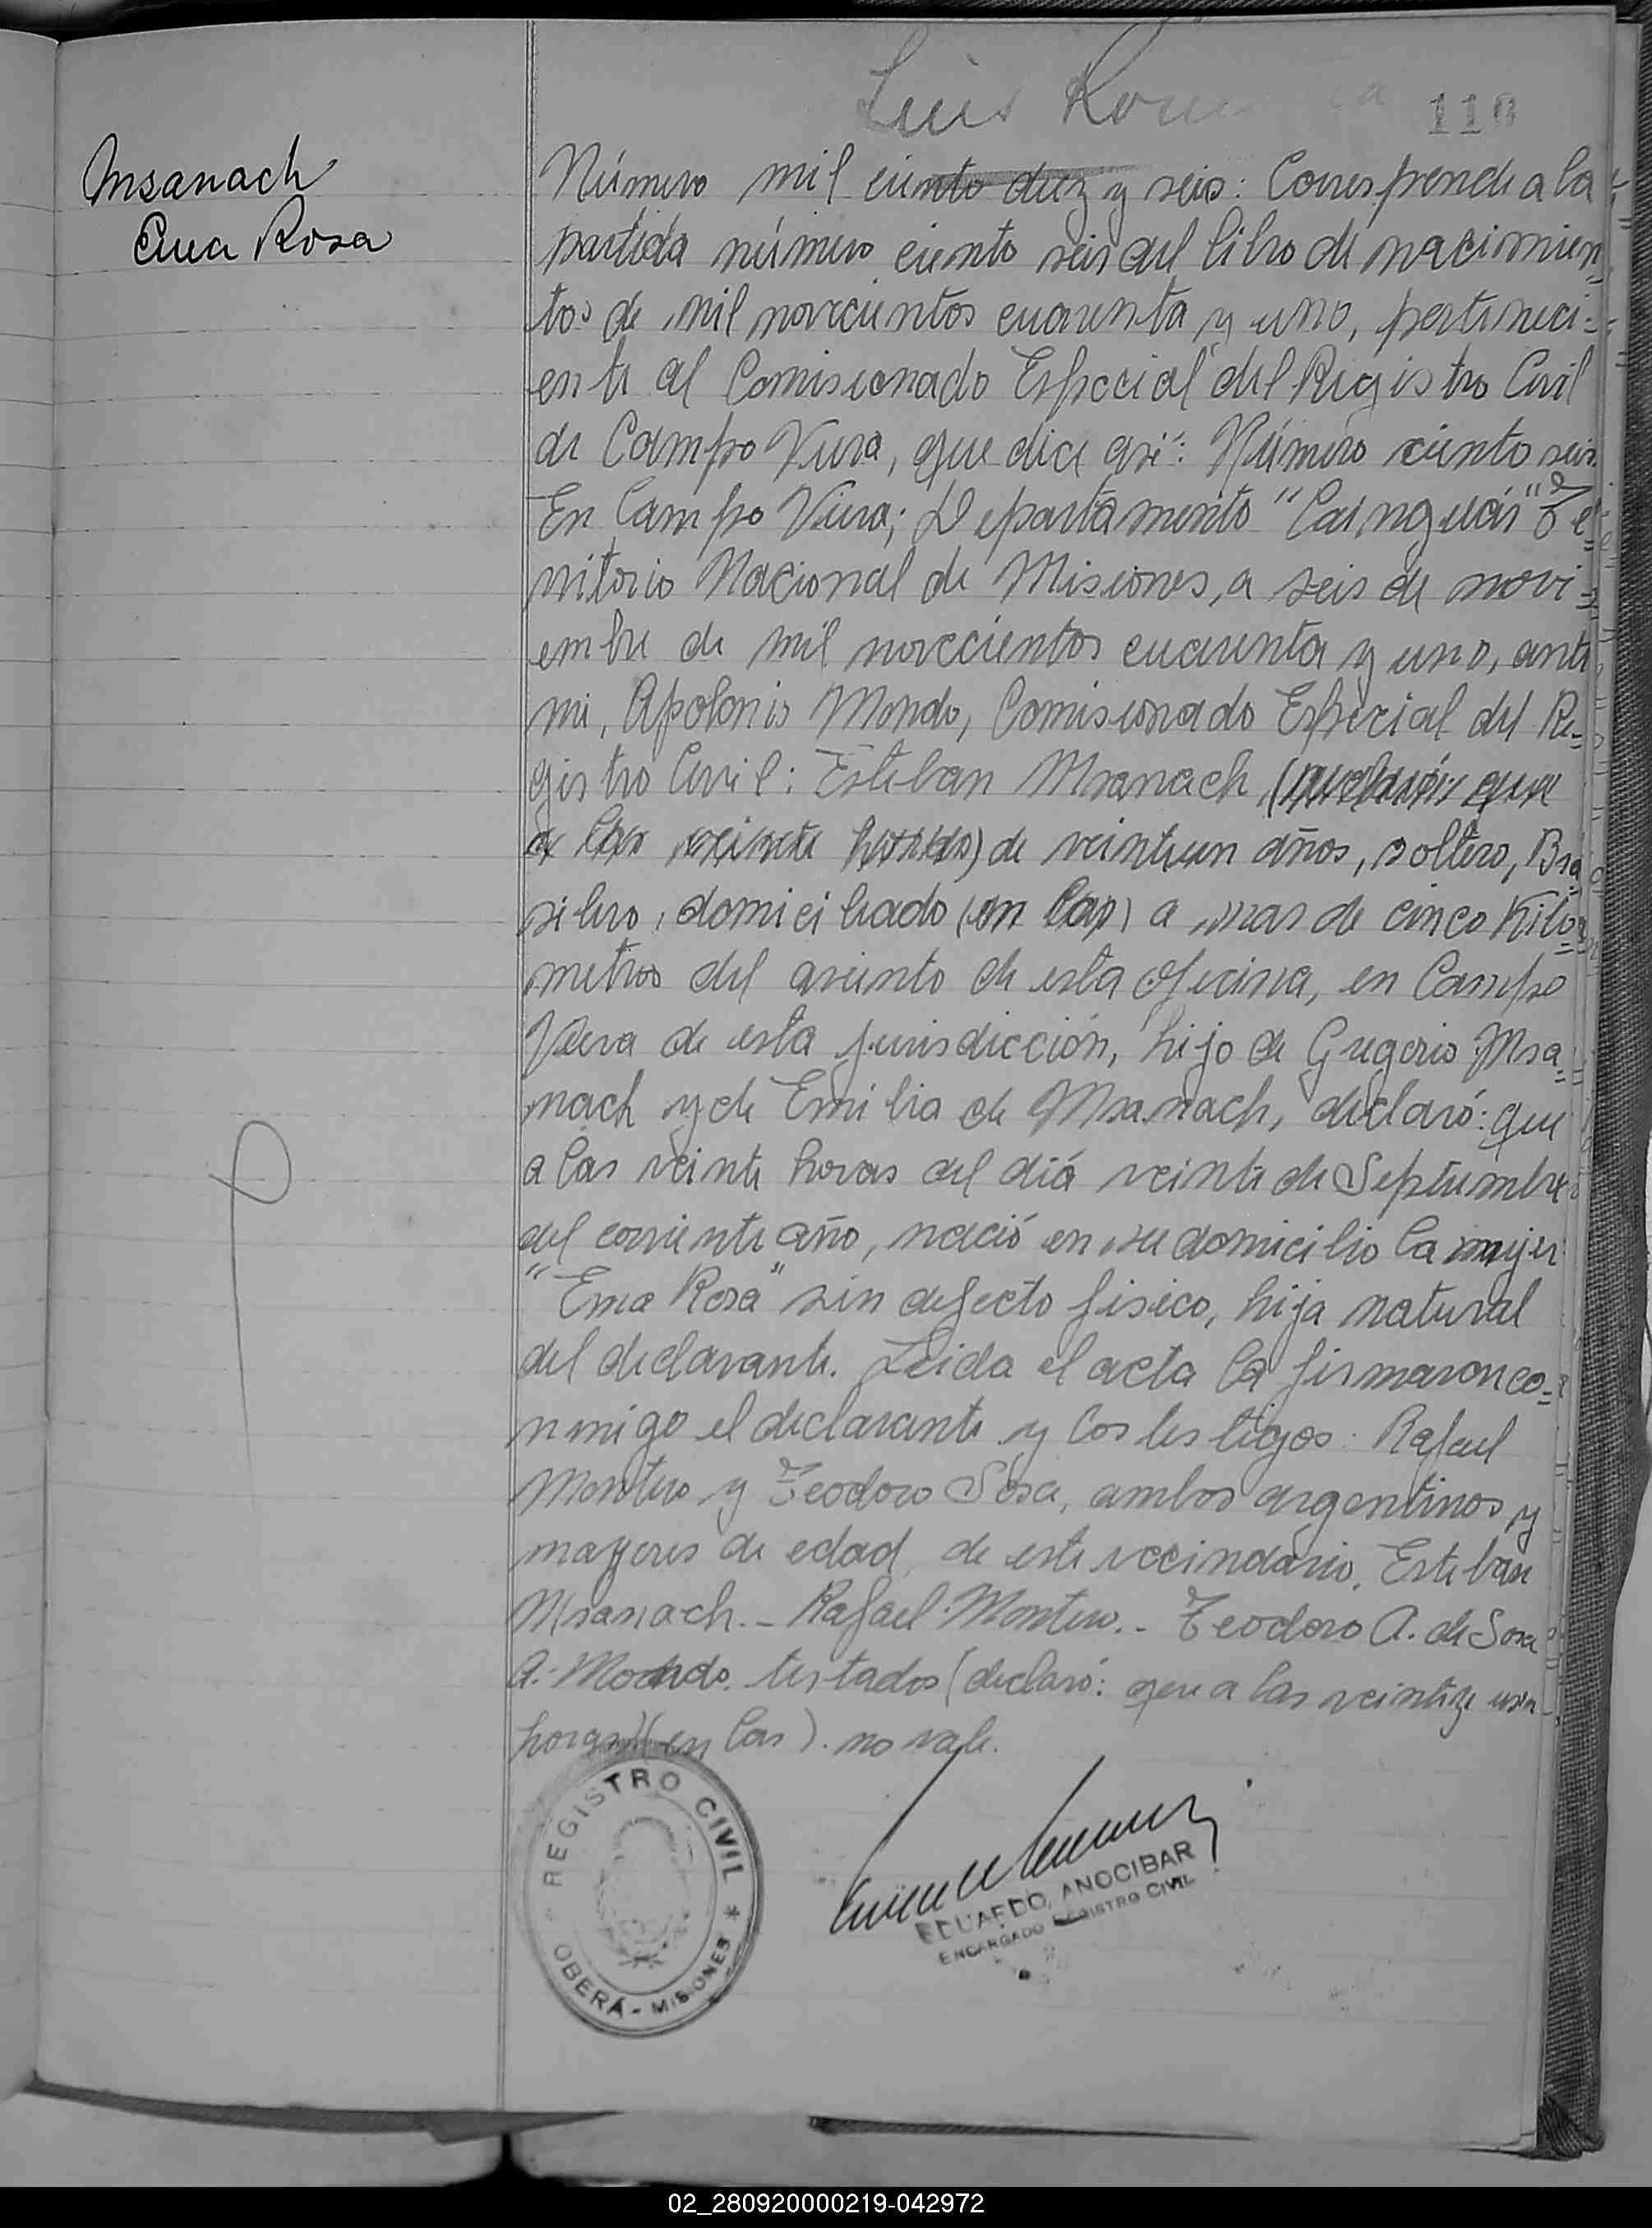 Luis
110
Msanach
Ema Rosa
Número mil ciento diez y seis: Corresponde a la
partida número ciento seis del libro de nacimien=
tos de mil novecientos cuarenta y uno, perteneci=
ente al Comisionado Especial del Registro Civil
de Campo Viera, que dice así: Número ciento seis
En Campo Viera; Departamento "Cainguás" Te=
rritorio Nacional de Misiones, a seis de novi=
embre de mil novecientos cuarenta y uno, ante
mi, Apolonio Mondo, Comisionado Especial del Re=
gistro Civil: Esteban Msanach, (declaró: que
a las veinte horas) de veintiun años, soltero, Bra
silero, domiciliado (en las) a mas de cinco Kilo=
metros del asiento de esta oficina, en Campo
Viera de esta jurisdicción, hijo de Gregorio Msa=
nach y de Emilia de Msanach, declaró: que
a las veinte horas del día veinte de Septiembre
del corriente año, nació en su domicilio la mujer
"Ema Rosa" sin defecto fisico, hija natural
del declarante. Leida el acta la firmaron co=
nmigo el declarante y los testigos: Rafael
Montero y Teodoro Sosa, ambos argentinos y
mayores de edad, de este vecindario. Esteban
Msanach.- Rafael Montero.- Teodoro A. de Sosa
A. Mondo. testados (declaró: que a las
horas) (en las). no vale.
REGISTRO CIVIL
OBERÁ - MISIONES
EDUARDO ANOCIBAR
ENCARGADO REGISTRO CIVIL
02_280920000219-042972